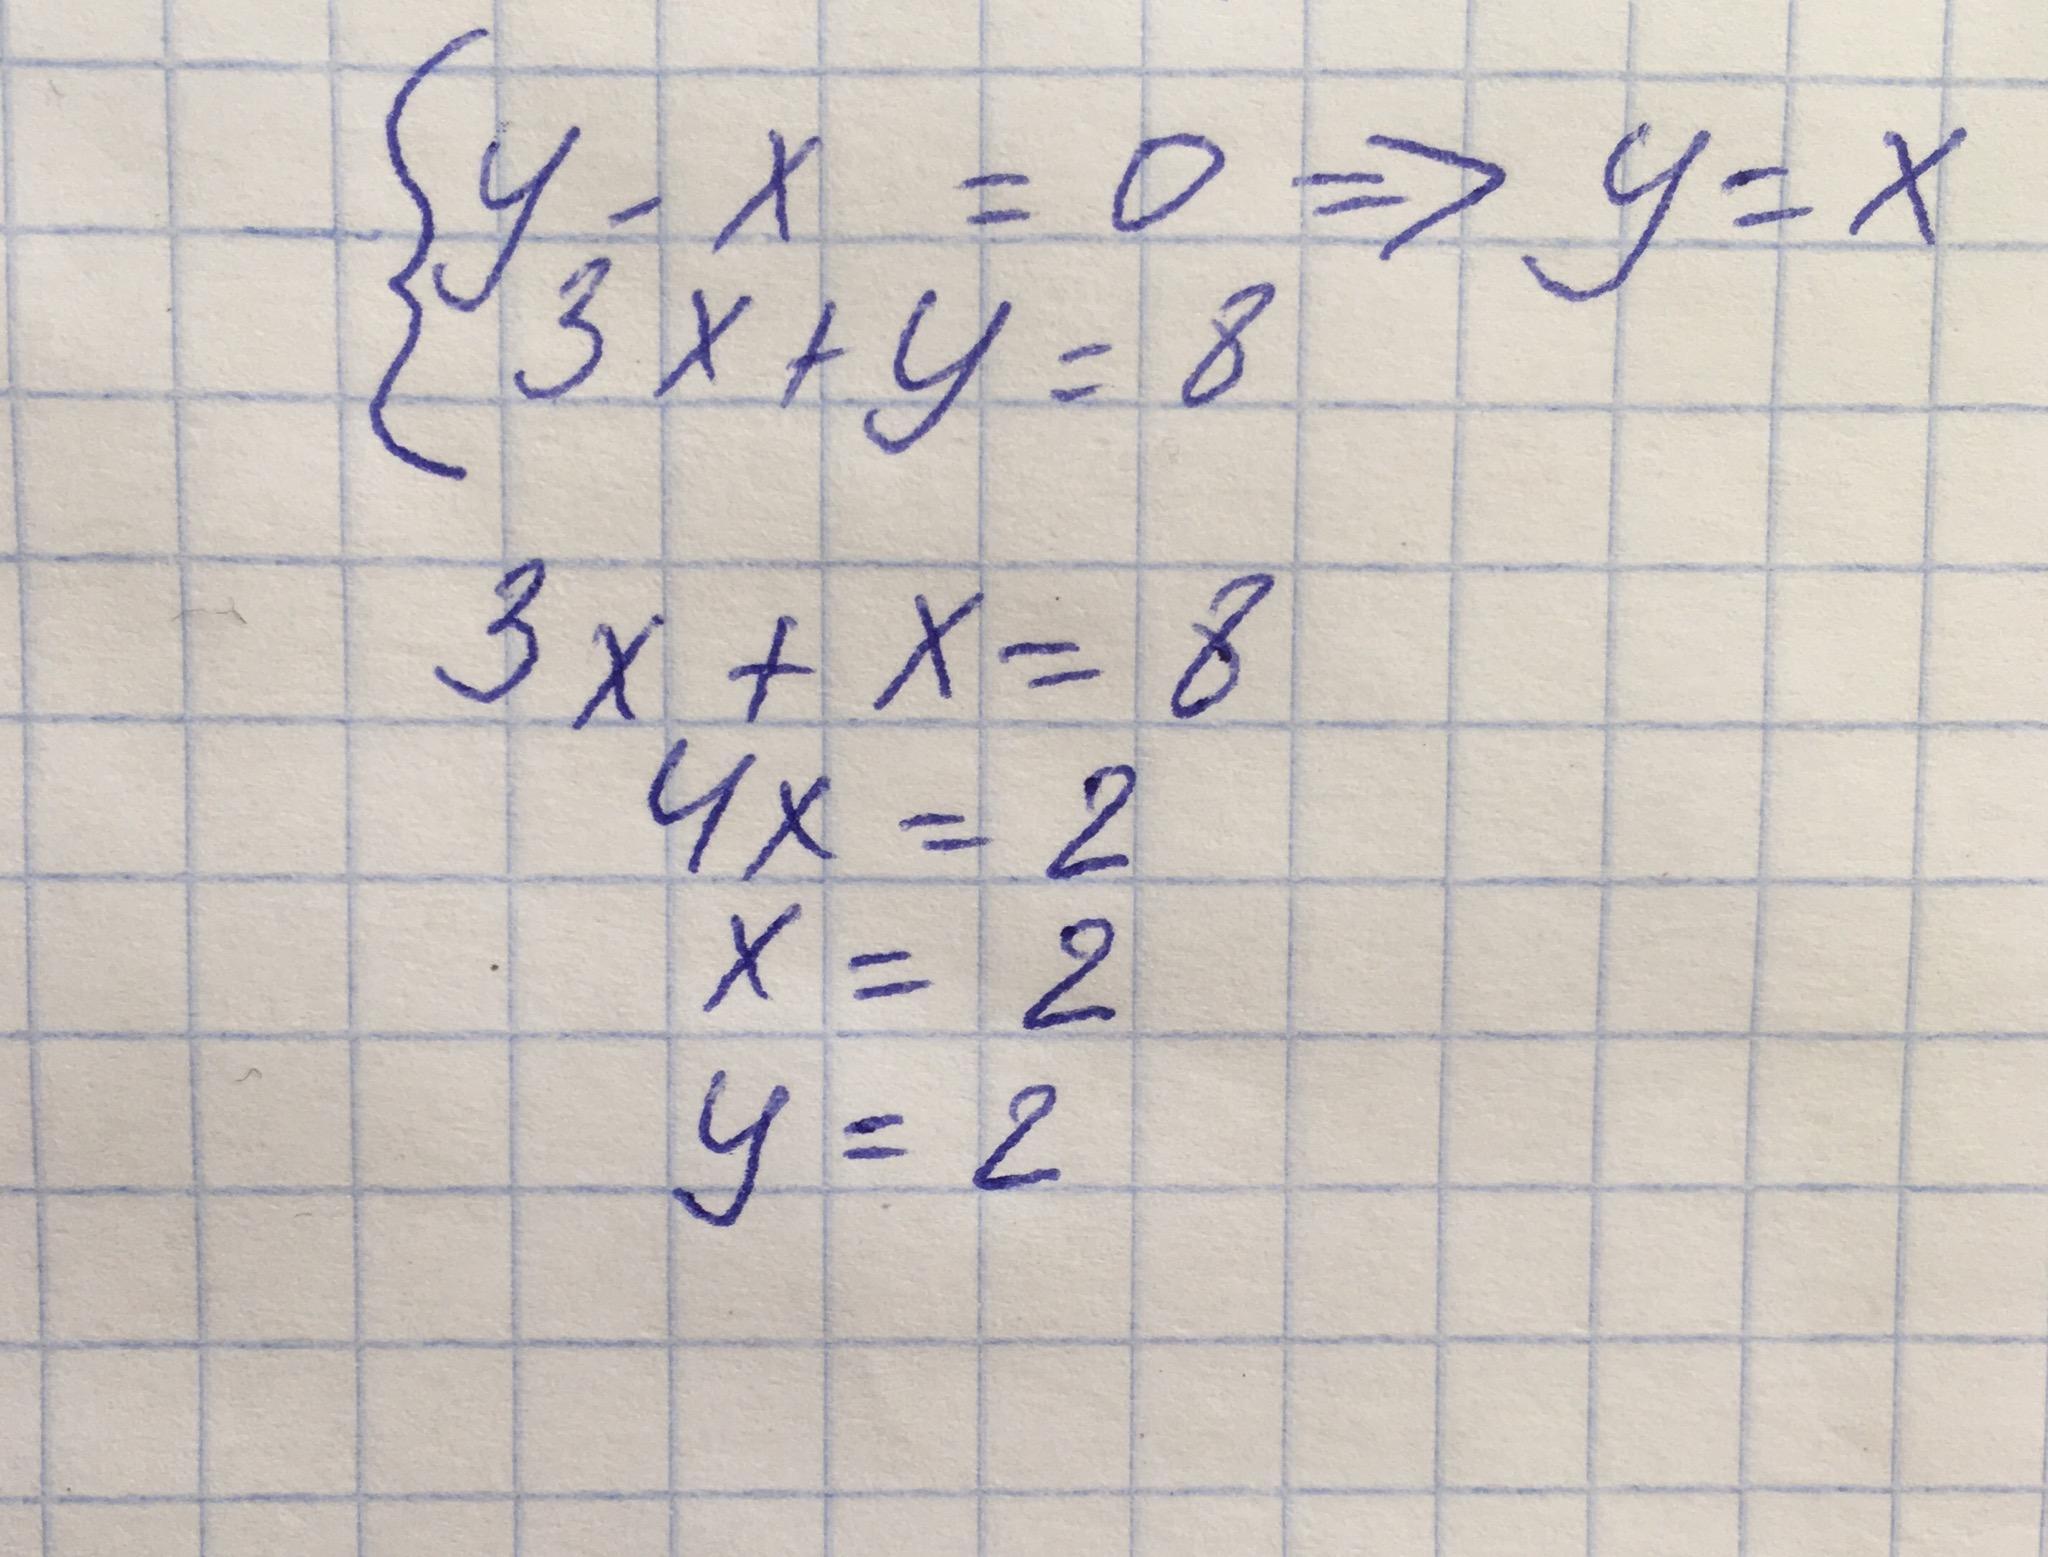 { y - x = 0 => y = x
3x + y = 8
3x + x = 8
4x = 2
x = 2
y = 2